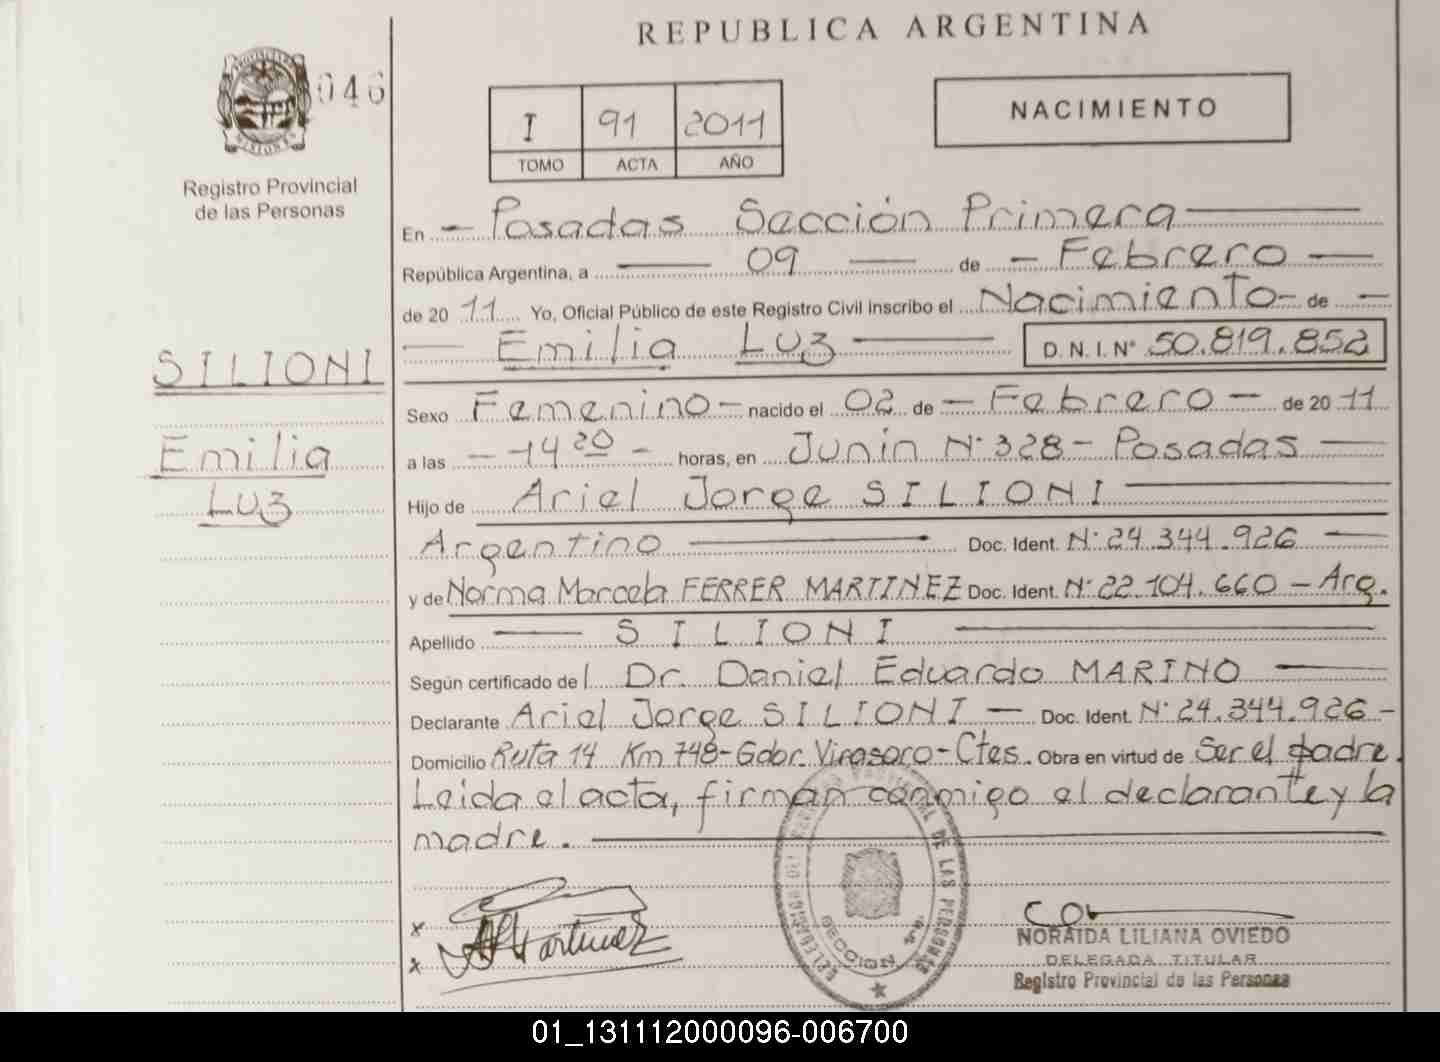 REPUBLICA ARGENTINA
046
I 91 2011
TOMO ACTA AÑO
NACIMIENTO
Registro Provincial
de las Personas
En - Posadas Sección Primera
República Argentina, a 09 de - Febrero
de 20 11 Yo, Oficial Público de este Registro Civil inscribo el Nacimiento - de -
Emilia Luz D. N. I. N° 50.819.852
SILIONI
Emilia
Luz
Sexo Femenino - nacido el 02 de - Febrero - de 20 11
a las - 14 20 - horas, en Junín N° 328 - Posadas
Hijo de Ariel Jorge SILIONI
Argentino Doc. Ident. N° 24.344.926
y de Norma Marcela FERRER MARTINEZ Doc. Ident. N° 22.104.660 - Arg.
Apellido SILIONI
Según certificado del Dr. Daniel Eduardo MARINO
Declarante Ariel Jorge SILIONI - Doc. Ident. N° 24.344.926 -
Domicilio Ruta 14 Km 748 - Gdor. Virasoro - Ctes. Obra en virtud de Ser el padre.
Leida el acta, firman conmigo el declarante y la
madre.
x
x
DE LAS PERSONAS
SECCION
NORAIDA LILIANA OVIEDO
DELEGADA TITULAR
Registro Provincial de las Personas
01_131112000096-006700